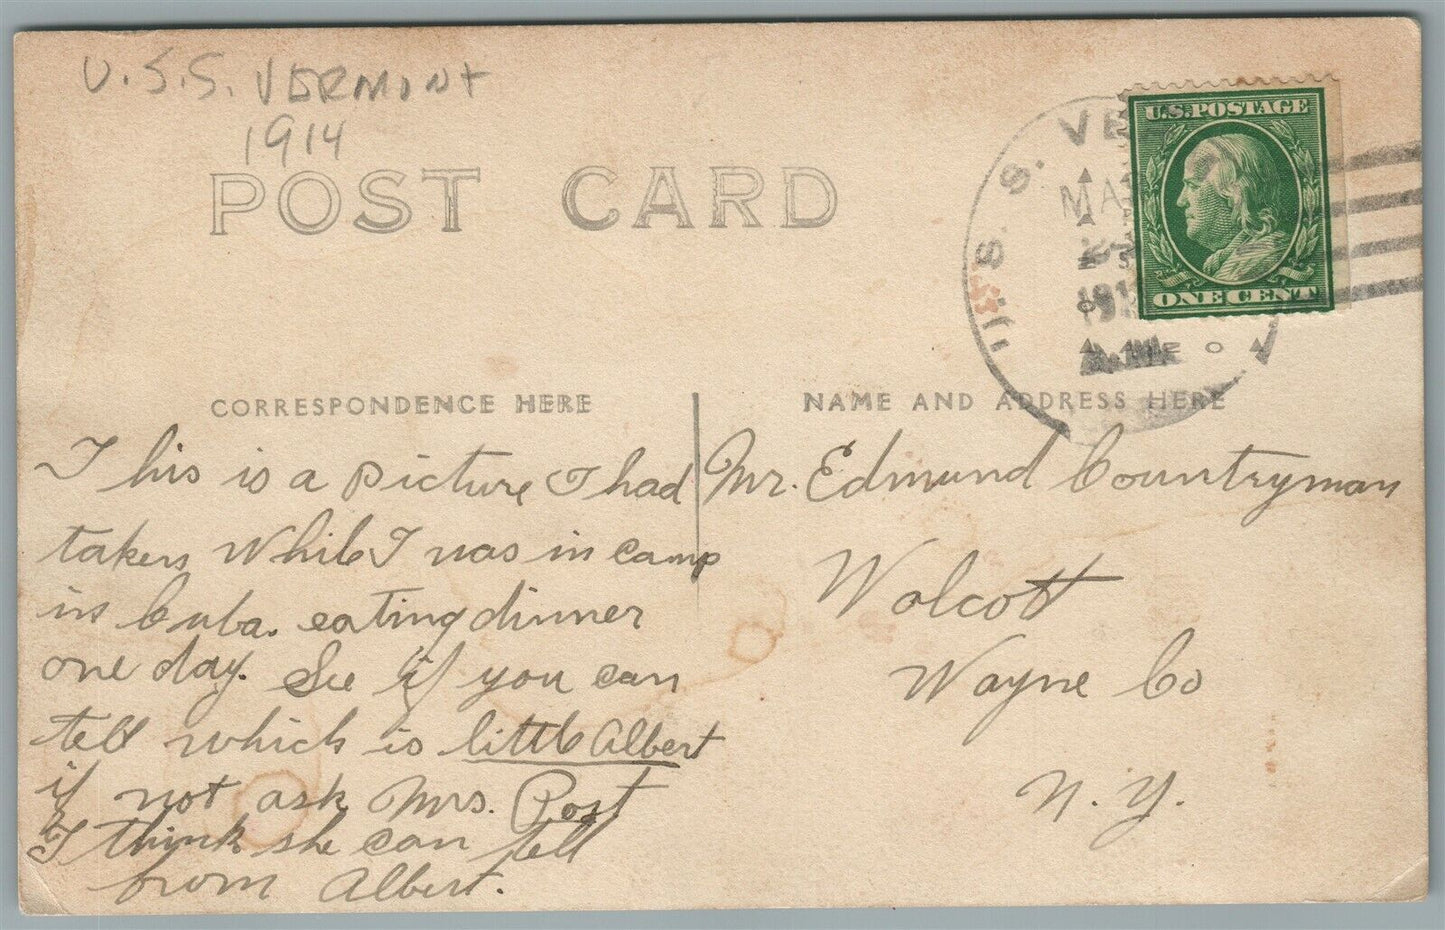 U.S.S. VERMONT
1914
POST CARD
U. S. S. VE
MA
U.S. POSTAGE
ONE CENT
CORRESPONDENCE HERE
NAME AND ADDRESS HERE
This is a picture I had
taken while I was in camp
in Cuba. eating dinner
one day. See if you can
tell which is little Albert
if not ask Mrs. Post
I think she can tell
from Albert.
Mr. Edmund Countryman
Wolcott
Wayne Co
N.Y.